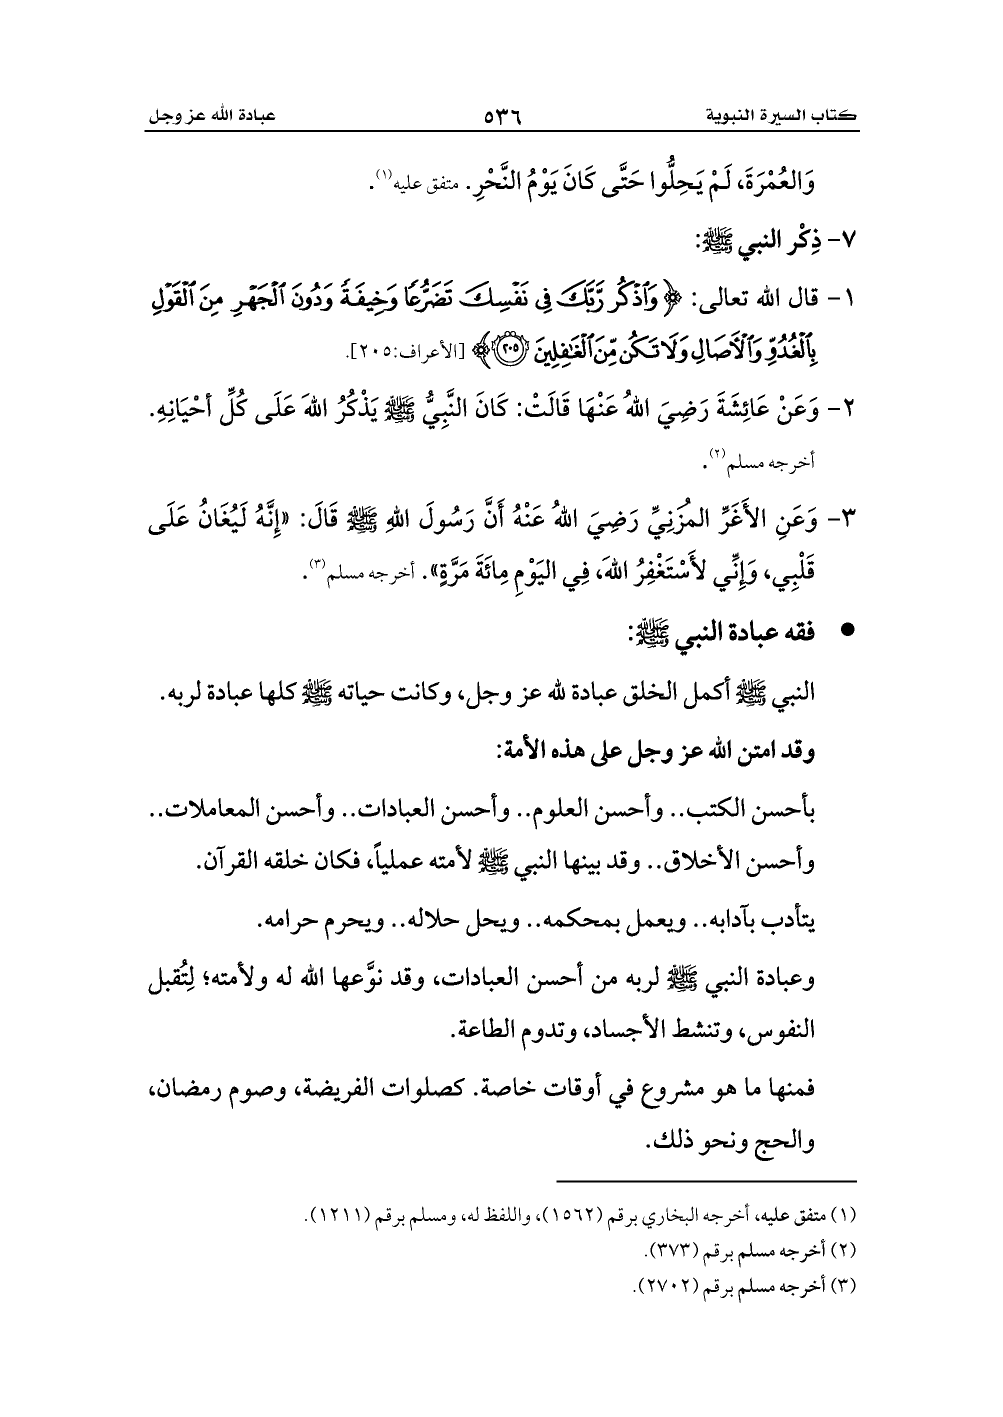 كتاب السيرة النبوية ٥٣٦ عبادة الله عز وجل
وَالعُمْرَةَ، لَمْ يَحِلُّوا حَتَّى كَانَ يَوْمُ النَّحْرِ. متفق عليه(١).
٧- ذِكْر النبي ﷺ:
١- قال الله تعالى: ﴿وَٱذْكُر رَّبَّكَ فِى نَفْسِكَ تَضَرُّعًا وَخِيفَةً وَدُونَ ٱلْجَهْرِ مِنَ ٱلْقَوْلِ
بِٱلْغُدُوِّ وَٱلْآصَالِ وَلَا تَكُن مِّنَ ٱلْغَٰفِلِينَ ٢٠٥﴾ [الأعراف:٢٠٥].
٢- وَعَنْ عَائِشَةَ رَضِيَ اللهُ عَنْهَا قَالَتْ: كَانَ النَّبِيُّ ﷺ يَذْكُرُ اللهَ عَلَى كُلِّ أحْيَانِهِ.
أخرجه مسلم(٢).
٣- وَعَنِ الأَغَرِّ المُزَنِيِّ رَضِيَ اللهُ عَنْهُ أَنَّ رَسُولَ اللهِ ﷺ قَالَ: «إِنَّهُ لَيُغَانُ عَلَى
قَلْبِي، وَإِنِّي لأَسْتَغْفِرُ اللهَ، فِي اليَوْمِ مِائَةَ مَرَّةٍ». أخرجه مسلم(٣).
● فقه عبادة النبي ﷺ:
النبي ﷺ أكمل الخلق عبادة لله عز وجل، وكانت حياته ﷺ كلها عبادة لربه.
وقد امتن الله عز وجل على هذه الأمة:
بأحسن الكتب.. وأحسن العلوم.. وأحسن العبادات.. وأحسن المعاملات..
وأحسن الأخلاق.. وقد بينها النبي ﷺ لأمته عملياً، فكان خلقه القرآن.
يتأدب بآدابه.. ويعمل بمحكمه.. ويحل حلاله.. ويحرم حرامه.
وعبادة النبي ﷺ لربه من أحسن العبادات، وقد نوَّعها الله له ولأمته؛ لِتُقبل
النفوس، وتنشط الأجساد، وتدوم الطاعة.
فمنها ما هو مشروع في أوقات خاصة. كصلوات الفريضة، وصوم رمضان،
والحج ونحو ذلك.
(١) متفق عليه، أخرجه البخاري برقم (١٥٦٢)، واللفظ له، ومسلم برقم (١٢١١).
(٢) أخرجه مسلم برقم (٣٧٣).
(٣) أخرجه مسلم برقم (٢٧٠٢).